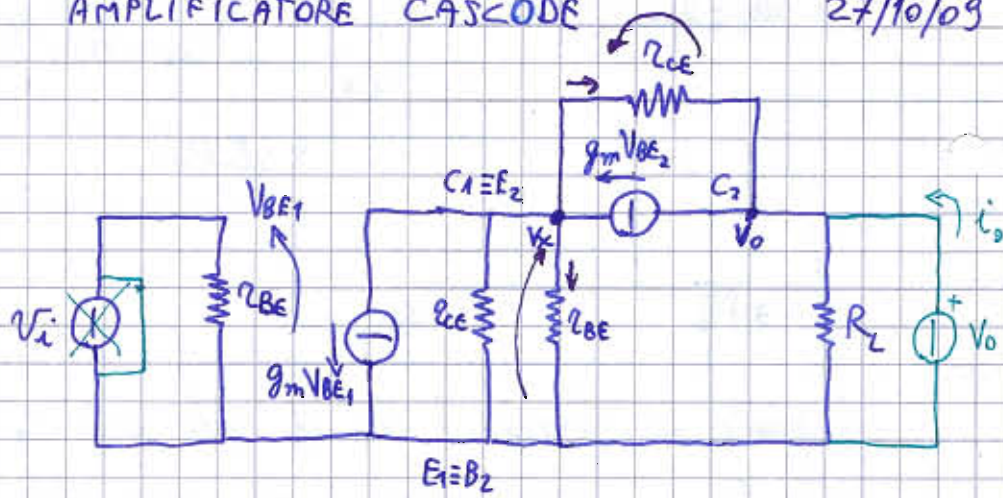 AMPLIFICATORE CASCODE 27/10/09
rCE
gmVBE2
C1≡E2 C2
VBE1
Vx Vo
io
Vi rBE rCE rBE RL + Vo
gmVBE1
E1≡B2